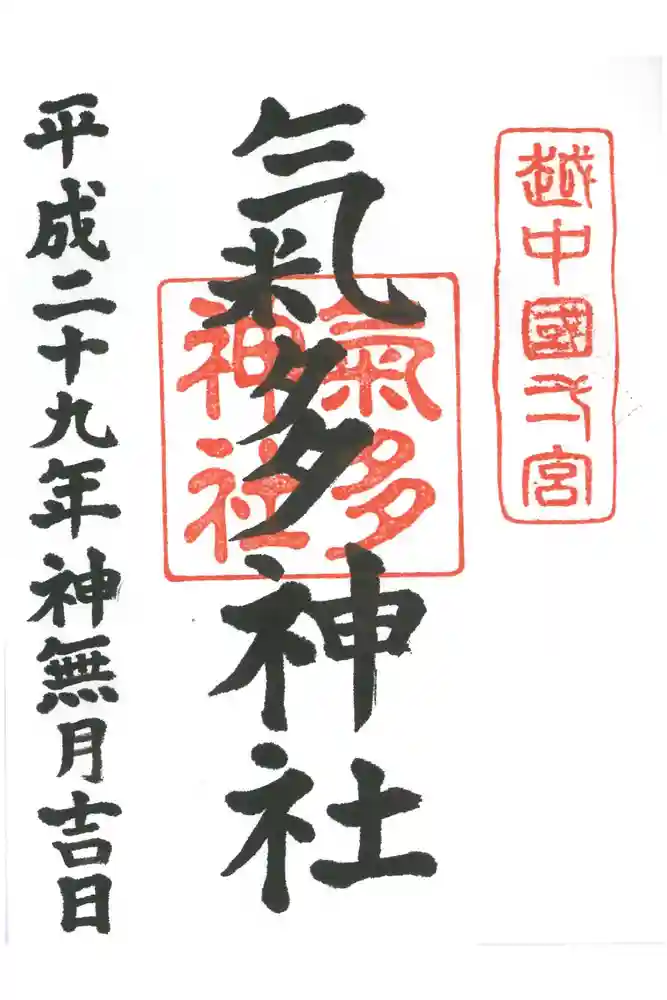 越中國弌宮
氣多神社
氣多
神社
平成二十九年神無月吉日